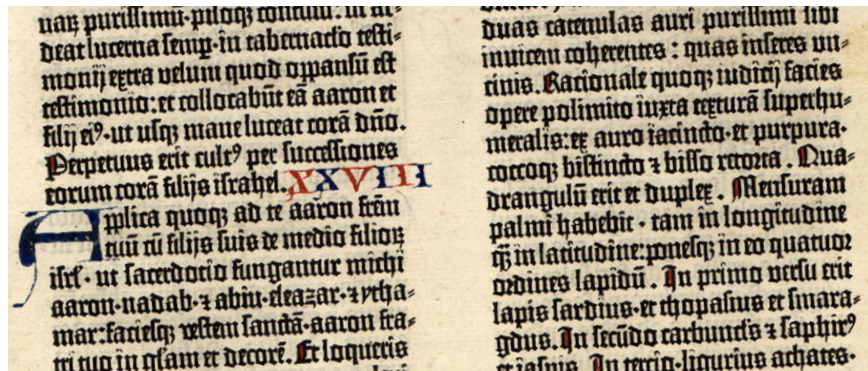 deat lucerna semp̲·in tabernac̄lo testi⸗
monij extra velum quod oppansū est
testimonio: et collocabūt eā aaron et
filij eiꝰ·ut usqꝫ mane luceat corā dn̄o.
Perpetuus erit cultꝰ per successiones
eorum corā filijs israhel. XXVIII
Applica quoqꝫ ad te aaron fr̄em
tuū cū filijs suis de medio filioꝝ
isrl̄· ut sacerdotio fungantur michi
aaron·nadab·⁊ abiu·eleazar·⁊ ytha⸗
mar: faciesqꝫ vestem sanctā·aaron fra⸗
tri tuo in gl̄am et decorē. Et loqueris
duas catenulas auri purissimi sibi
invicem coherentes: quas inseres un⸗
cinis. Rationale quoqꝫ iudicij facies
opere polimito iuxta texturā superhu⸗
meralis: ex auro iacincto·et purpura·
coccoqꝫ bistincto ⁊ bisso retorta. Qua⸗
drangulū erit et duplex. Mensuram
palmi habebit·tam in longitudine
qm̄ in latitudine: ponesqꝫ in eo quatuor
ordines lapidū. In primo versu erit
lapis sardius·et thopasius et smara⸗
gdus. In secūdo carbuncl̄s ⁊ saphirꝰ
et iaspis. In tercio·ligurius achates·